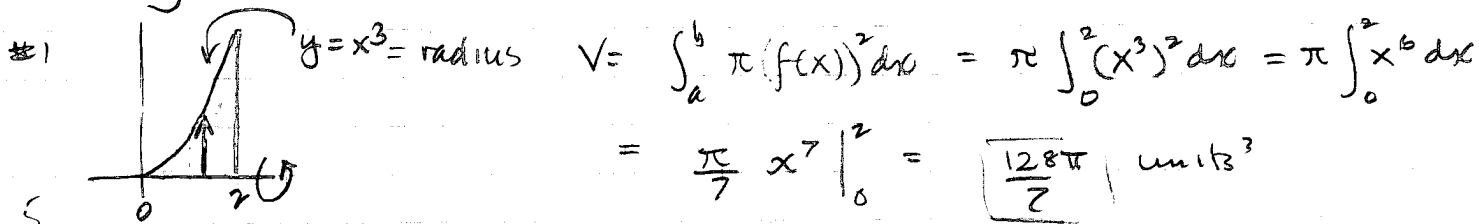 #1 y = x³ = radius V = ∫ₐᵇ π(f(x))² dx = π ∫₀² (x³)² dx = π ∫₀² x⁶ dx
= π/7 x⁷ |₀² = 128π/7 units³
0 2